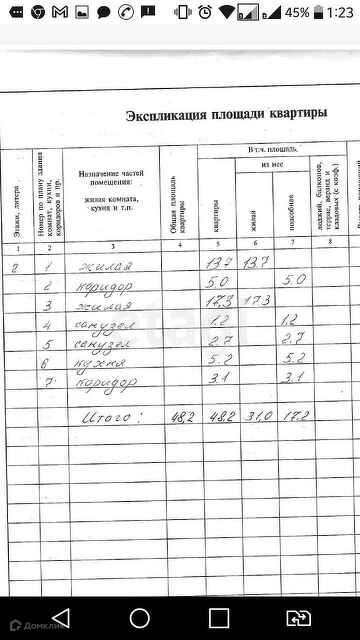 45% 1:23
Экспликация площади квартиры
Этажи, литера
Номер по плану здания
комнат, кухни,
коридоров и пр.
Назначение частей
помещения:
жилая комната,
кухня и т.п.
Общая площадь
квартиры
В т.ч. площадь,
квартиры
из нее
жилая
подсобная
лоджий, балконов,
террас, веранд и
кладовых (с коэф.)
1 2 3 4 5 6 7 8
2 1 жилая 13.7 13.7
2 коридор 5.0 5.0
3 жилая 17.3 17.3
4 санузел 1.2 1.2
5 санузел 2.7 2.7
6 кухня 5.2 5.2
7. коридор 3.1 3.1
Итого: 48,2 48,2 31,0 17.2
Домклик